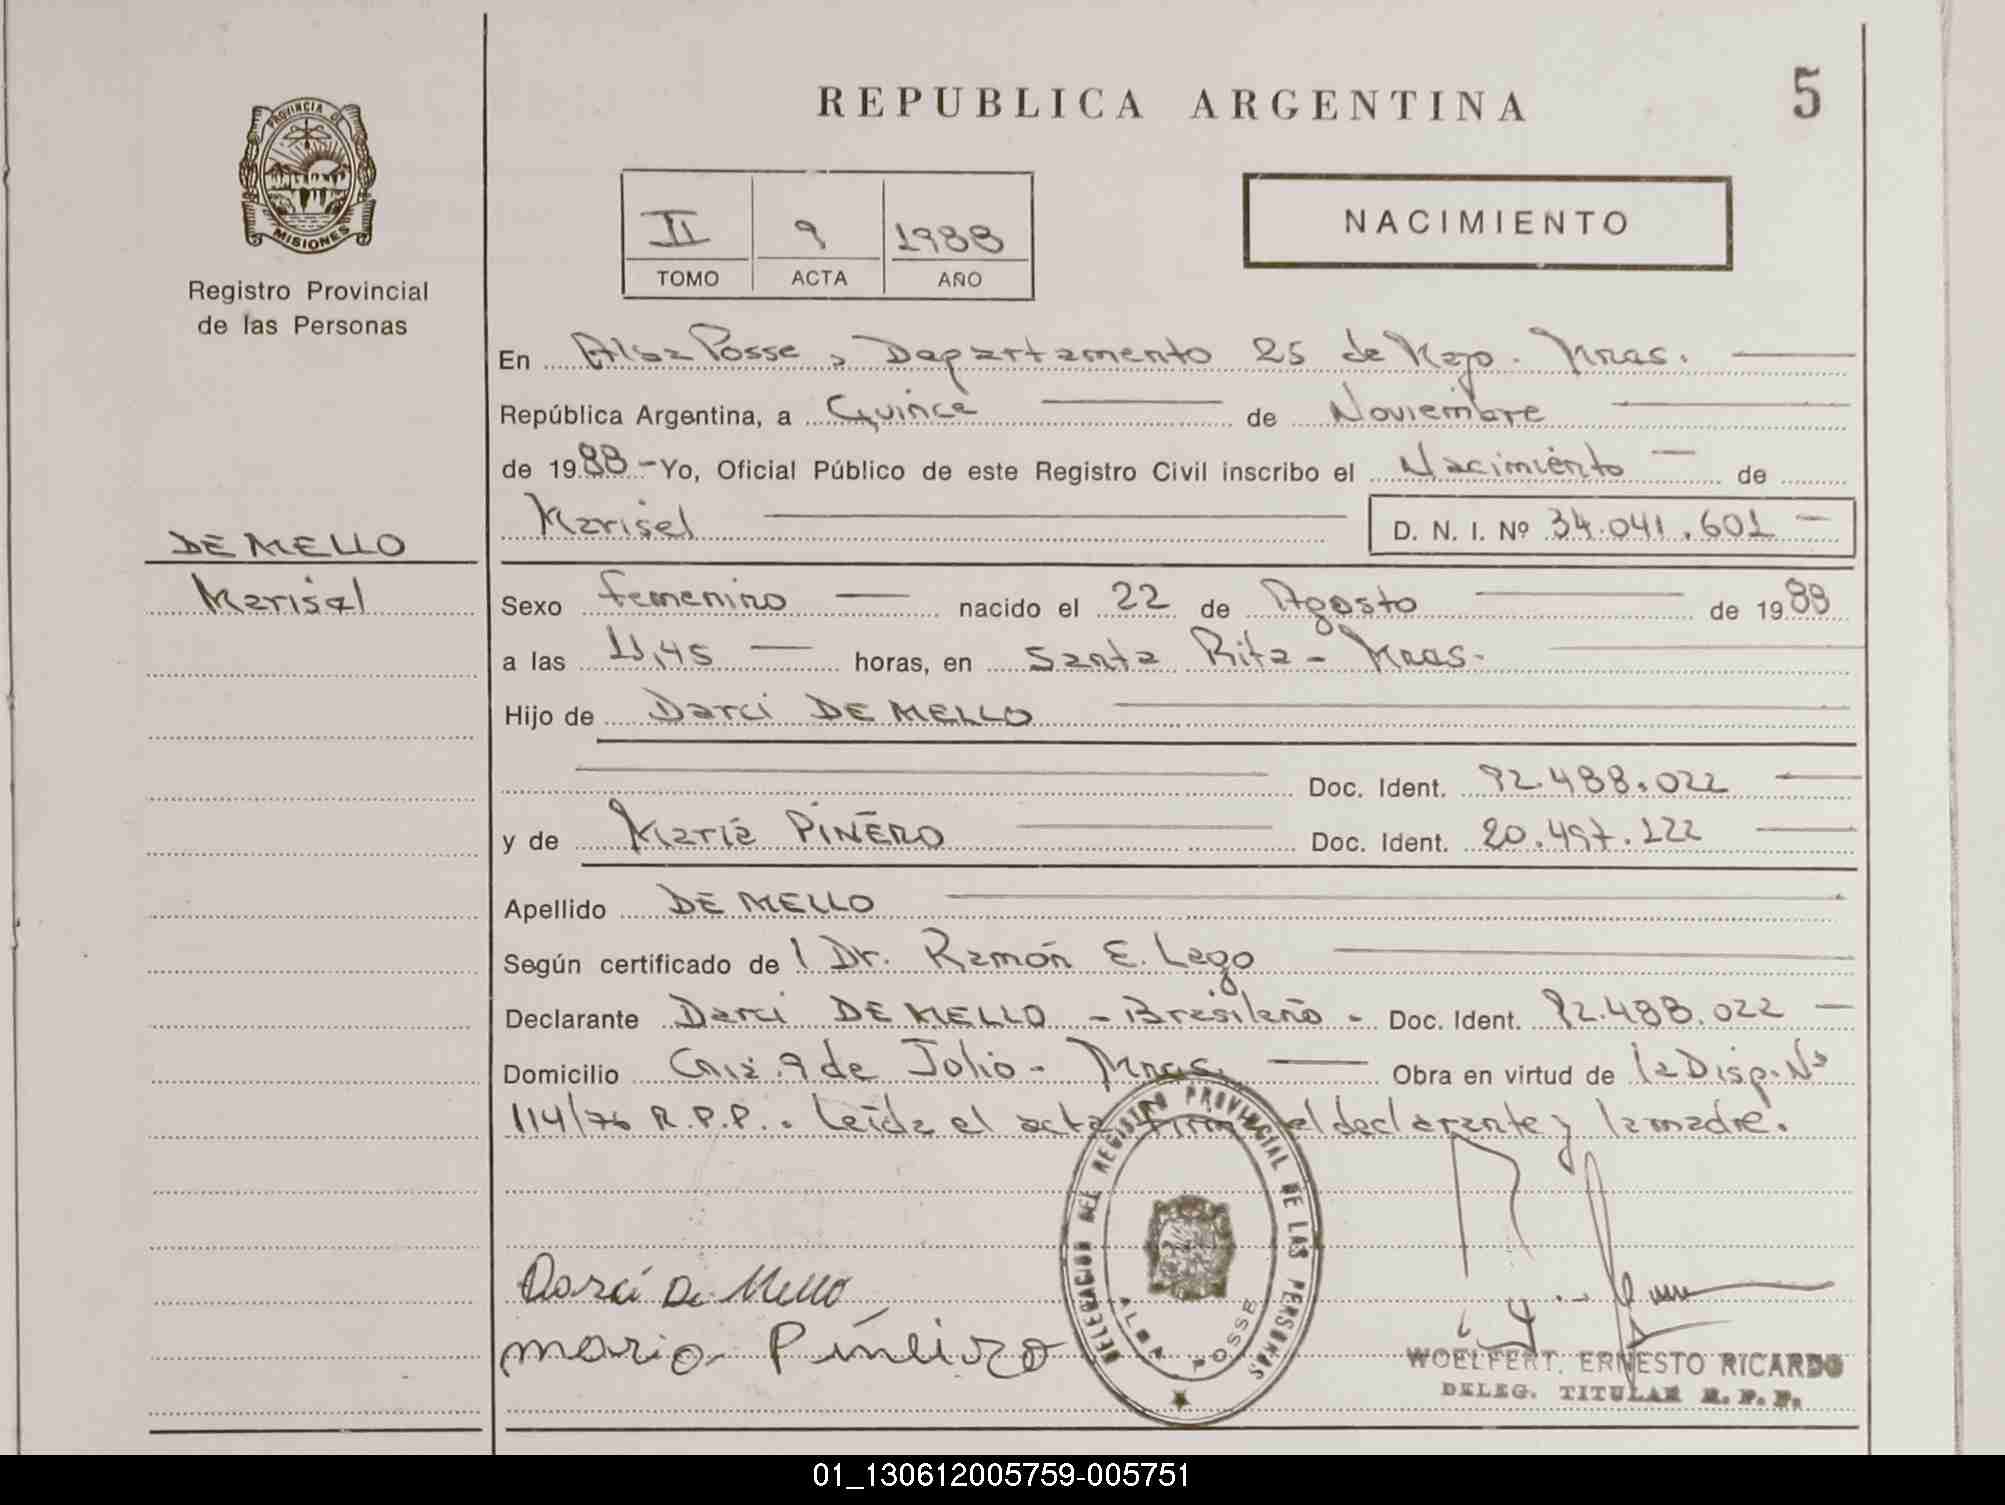 REPUBLICA ARGENTINA
5
PROVINCIA DE
MISIONES
Registro Provincial
de las Personas
II 9 1988
TOMO ACTA AÑO
NACIMIENTO
En Alba Posse, Departamento 25 de Mayo. Mnes.
República Argentina, a Quince de Noviembre
de 1988 - Yo, Oficial Público de este Registro Civil inscribo el Nacimiento de
Marisel D. N. I. Nº 34.041.601
DE MELLO
Marisel
Sexo femenino nacido el 22 de Agosto de 1988
a las 11,45 horas, en Santa Rita - Mnes.
Hijo de Darci DE MELLO
Doc. Ident. 92.488.022
y de María PIÑERO Doc. Ident. 20.497.122
Apellido DE MELLO
Según certificado de l Dr. Ramón E. Lago
Declarante Darci DE MELLO - Brasileño - Doc. Ident. 92.488.022
Domicilio 9 de Julio - Mnes. Obra en virtud de la Disp. Nº
114/76 R.P.P. . Leída el acta firma el declarante y la madre.
Darci De Mello
maria Piñeiro
DELEGACION DEL REGISTRO PROVINCIAL DE LAS PERSONAS
ALBA POSSE
WOELFERT, ERNESTO RICARDO
DELEG. TITULAR R. P. P.
01_130612005759-005751